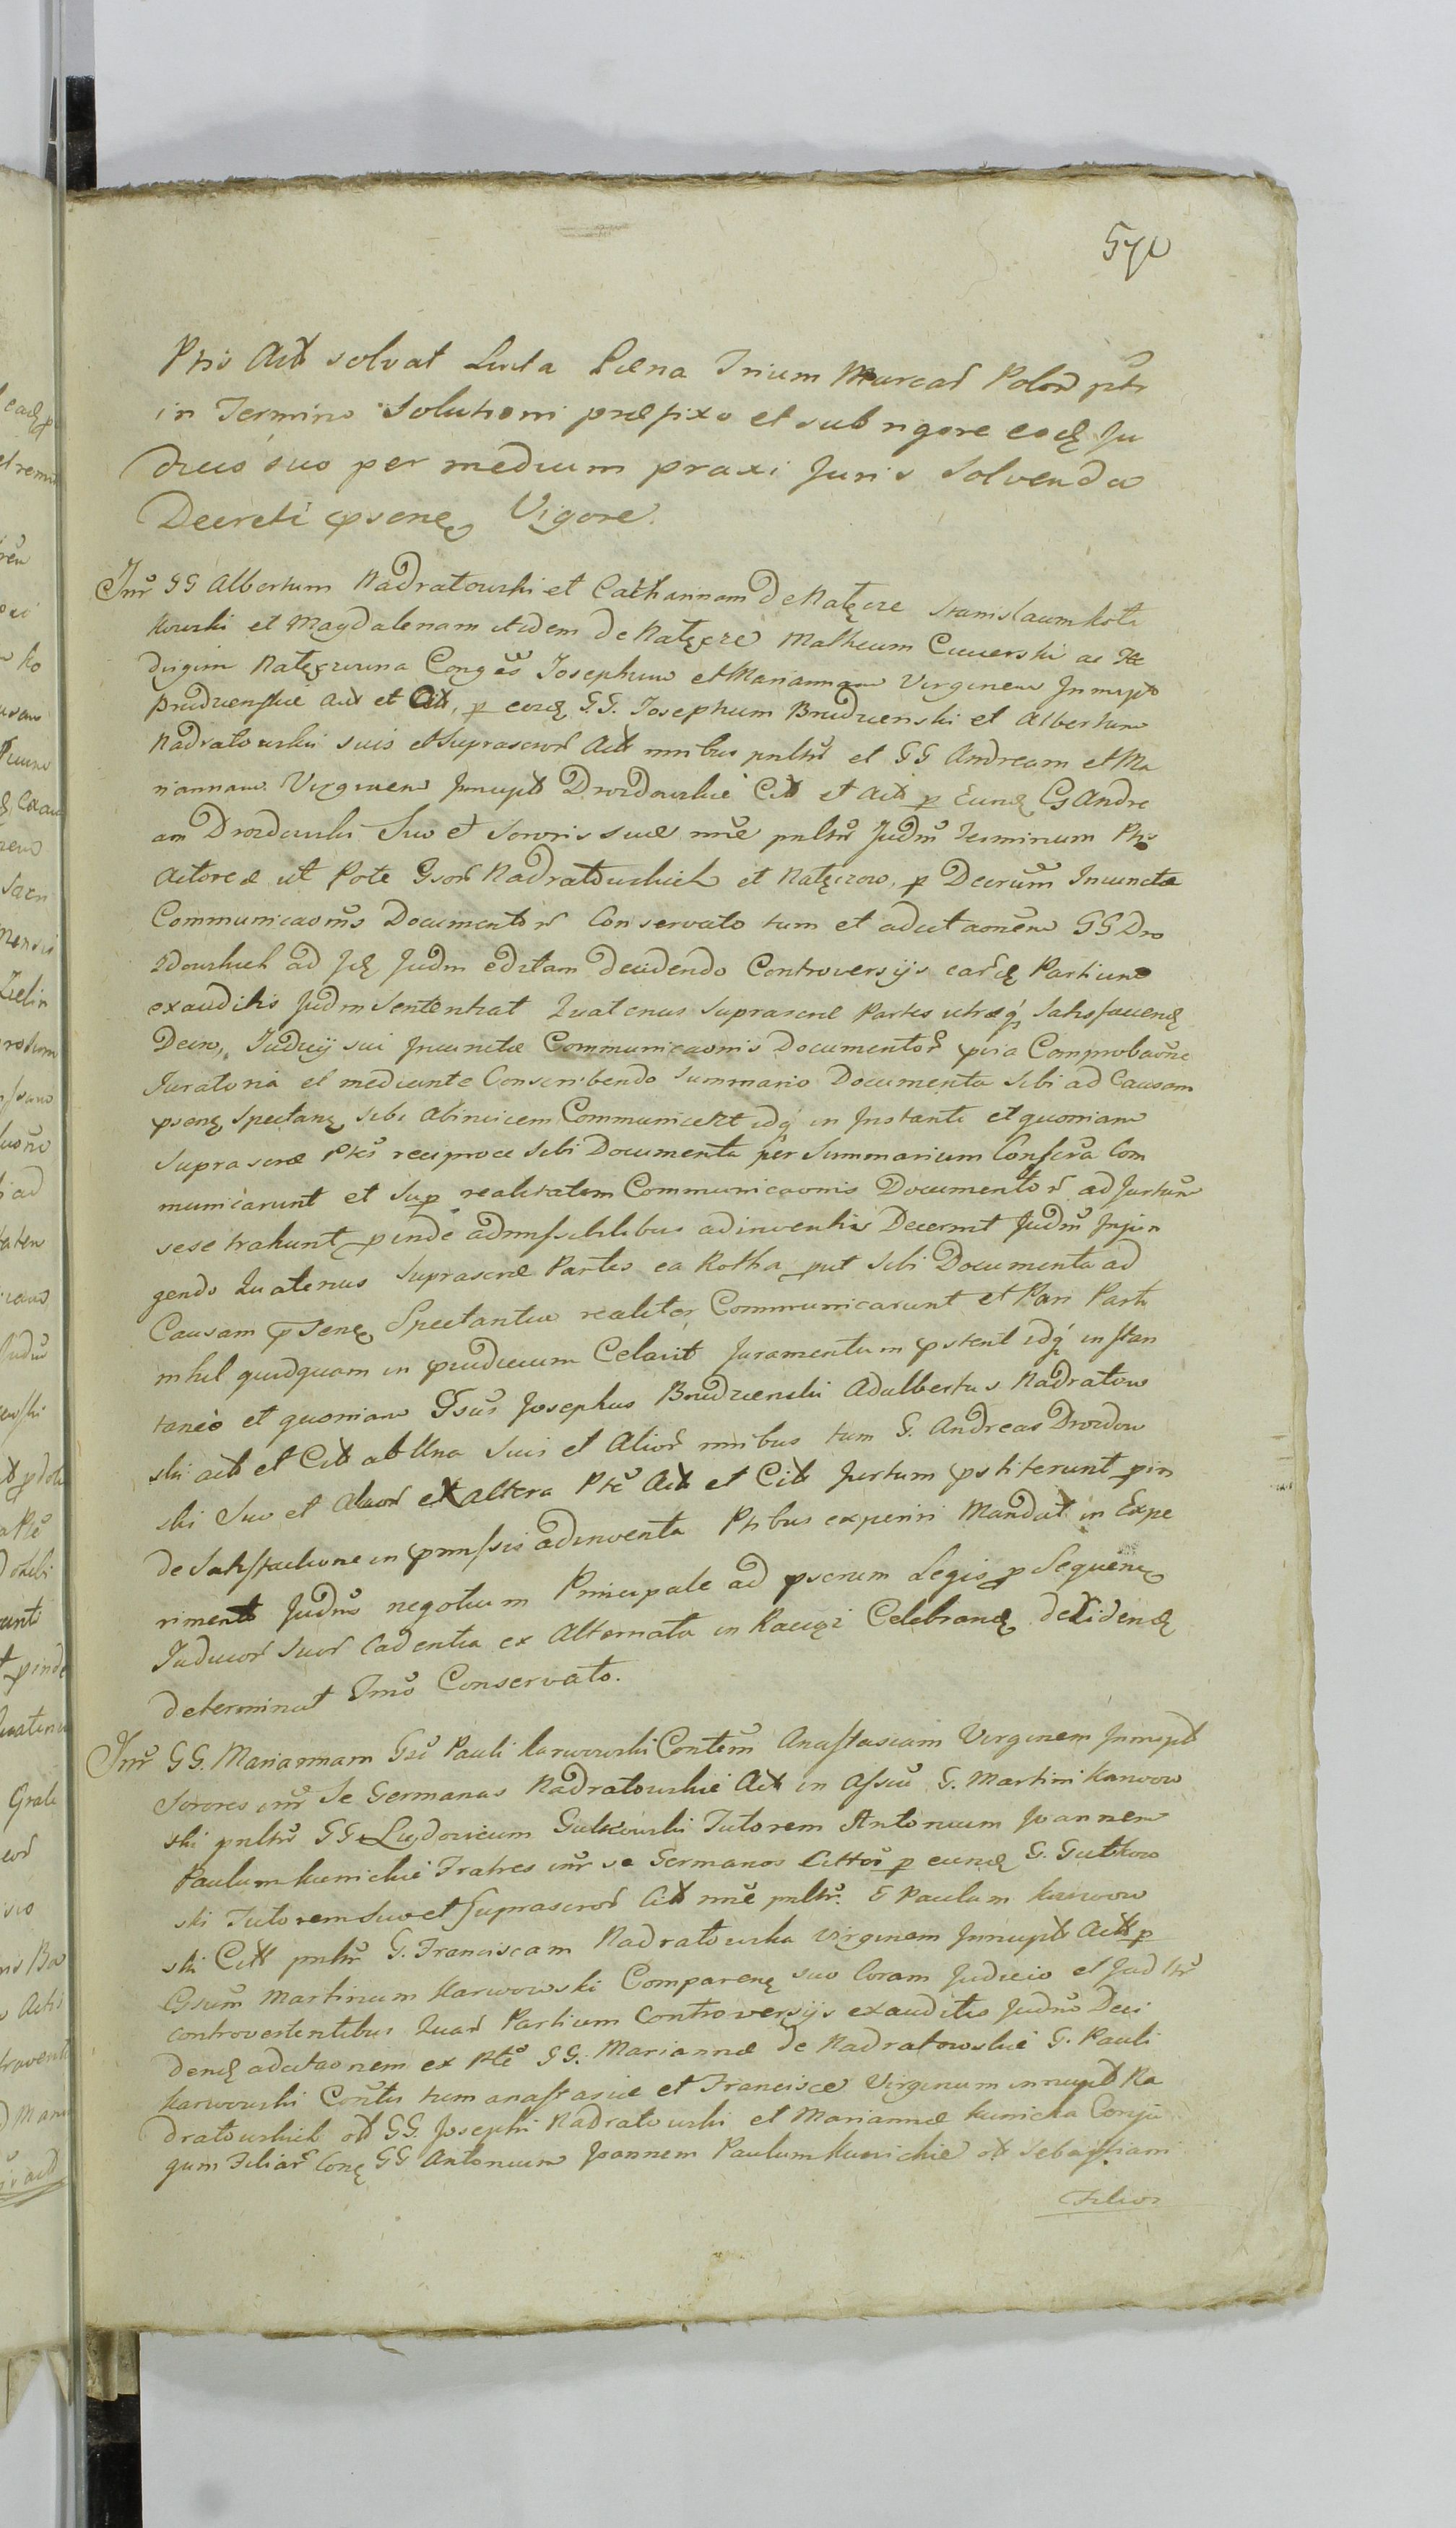 571
Ptis Actt solvat Luita Pæna Trium Marcar Polon ptr
in Termino Solutioni præfixo et sub rigore eode Ju
dicio suo per medium praxi Juris Solvenda
Decreti psene Vigore.
Inr GG Albertum Nadratowski et Catharinam de Natęcze Stanislaum Koti
kowski et Magdalenam itidem de Natęcze Matheum Cuwerski ac He
dvigim Natęczowna Conges Josephum et Mariannam Virginem Innupt
Brudzenskie Actt et Citt, p eund GG. Josephum Brudzenski et Albertum
Nadratowski suis et Suprascror Actt mnibus pnltr et GG Andream et Ma
riannam Virginem Innupt Drozdowskie Citt et Actt p Eund Gs Andre
am Drozdowski Suo et Sororis suæ nne pnltr Judm Terminum Ptis
Actoreæ ut Pote Gsor Nadratowskich et Natęczow, p Decrum Iniunctæ
Communicaonis Documentor Conservato tum et ad citaonem GG Dro
zdowskich ad Jd Judm editam decidendo Controversijs eard Partium
exauditis Judm Sententiat Quatenus Suprascræ Partes utræq Satisfaciend
Decr, Judicij sui Iniunctæ Communicaonis Documentor pvia Comprobaone
Juratoria et mediante Conscribendo Summario Documenta Sibi ad Causam
psene Spectane sibi abinvicem Communicent idq in Instanti et quoniam
Suprascræ Ptes reciproce Sibi Documenta per Summarium Conscra Com
municarunt et Sup realitatem Communicaonis Documentor ad Jurtum
sese trahunt pinde admissibilibus adinventis Decernit Judm Injun
gendo Quatenus Suprascræ Partes ea Rotha put Sibi Documenta ad
Causam psene Spectantia realiter Communicarunt et Pars Parti
nihil quidquam in pjudicium Celavit Juramentum pstent idq instan
taneo et quoniam Gsus Josephus Brudzenski Adalbertus Nadratow
ski actt et Citt ab Una Suis et Alior nnibus tum G. Andreas Drozdow
ski Suo et Alior ex Altera Pte Actt et Citt Jurtum pstiterunt pin
de Satisfactione in pmissis adinventa Ptibus experiri Mandat in Expe
rimento Judm negotium Principale ad pscrum Legis p Sequene
Judicior Suor Cadentia ex Alternata in Raciąż Celebrand decidend
determinat Tmo Conservato.
Inr GG. Mariannam Gsi Pauli Karwowski Contem Anastasiam Virginem Innupt
Sorores inr Se Germanas Nadratowskie Actt in Assia G. Martini Karwow
ski pnltr GG Ludovicum Gutkowski Tutorem Antonium Joannem
Paulum Kunickie Fratres inr se Germanos Cittos p eund G. Gutkow
ski Tutorem Suo et Suprascror Citt nne pnltr. G Paulum Karwow
ski Citt pnltr G. Franciscam Nadratowska Virginem Innupt Actt p
Gsum Martinum Karwowski Comparene suo Coram Judicio et Jud ltr
controvertentibus Quar Partium Controversijs exauditis Judm Deci
dend ad citaonem ex Pte GG. Mariannæ de Nadratowskie G. Pauli
Karwowski Contis tum anastasiæ et Franciscæ Virginum innupt Na
dratowskich olt GG. Josephi Nadratowski et Mariannæ Kunicka Conju
gum Filiar Cone GG Antonium Joannem Paulum Kunickie olt Sebastiani
Filios